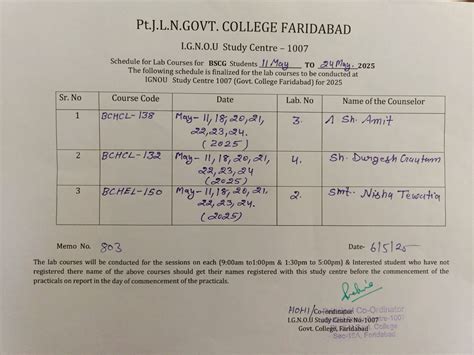 Pt.J.L.N.GOVT. COLLEGE FARIDABAD
I.G.N.O.U Study Centre – 1007
Schedule for Lab Courses for BSCG Students 11 May TO 24 May. 2025
The following schedule is finalized for the lab courses to be conducted at
IGNOU Study Centre 1007 (Govt. College Faridabad) for 2025
Sr. No Course Code Date Lab. No Name of the Counselor
1 BCHCL-138 May-11,18,20,21, 3. Sh. Amit
22,23,24.
(2025)
2 BCHCL-132 May-11,18,20,21, 4. Sh. Durgesh Gautam
22,23,24
(2025)
3 BCHEL-150 May-11,18,20,21, 2. Smt. Nisha Tewatia
22,23,24.
(2025)
Memo No. 803 Date- 6/5/25
The lab courses will be conducted for the sessions on each (9:00am to1:00pm & 1:30pm to 5:00pm) & Interested student who have not
registered there name of the above courses should get their names registered with this study centre before the commencement of the
practicals on report in the day of commencement of the practicals.
Co-ordinator
I.G.N.O.U Study Centre No. 1007
Govt. College, Faridabad
Sec-15A, Faridabad